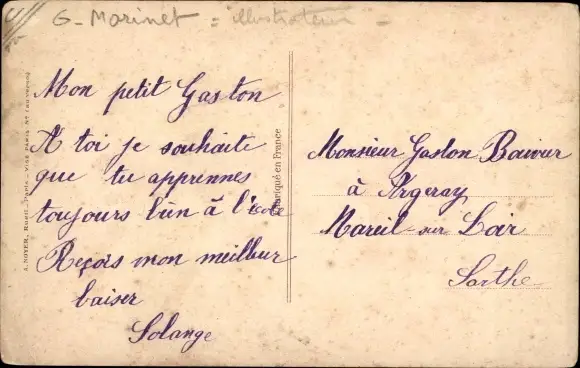 G. Marinet = illustrateur =
Mon petit Gaston
A toi je souhaite
que tu apprennes
toujours bien à l'école
Reçois mon meilleur
baiser
Solange
Fabriqué en France
Monsieur Gaston
à Argeray
Mareil sur Loir
Sarthe